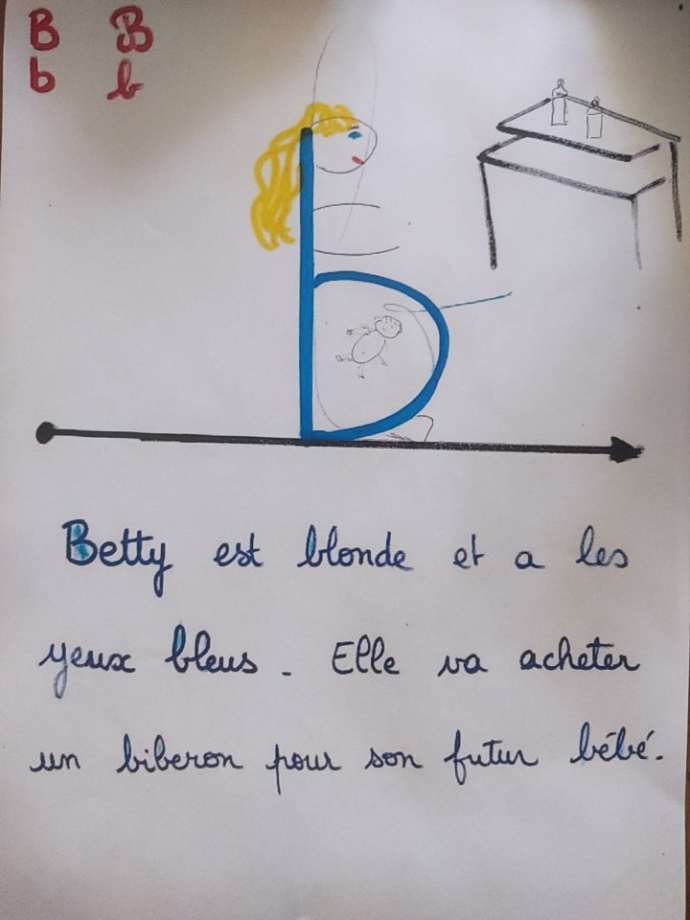 B B
b b
Betty est blonde et a les
yeux bleus. Elle va acheter
un biberon pour son futur bébé.